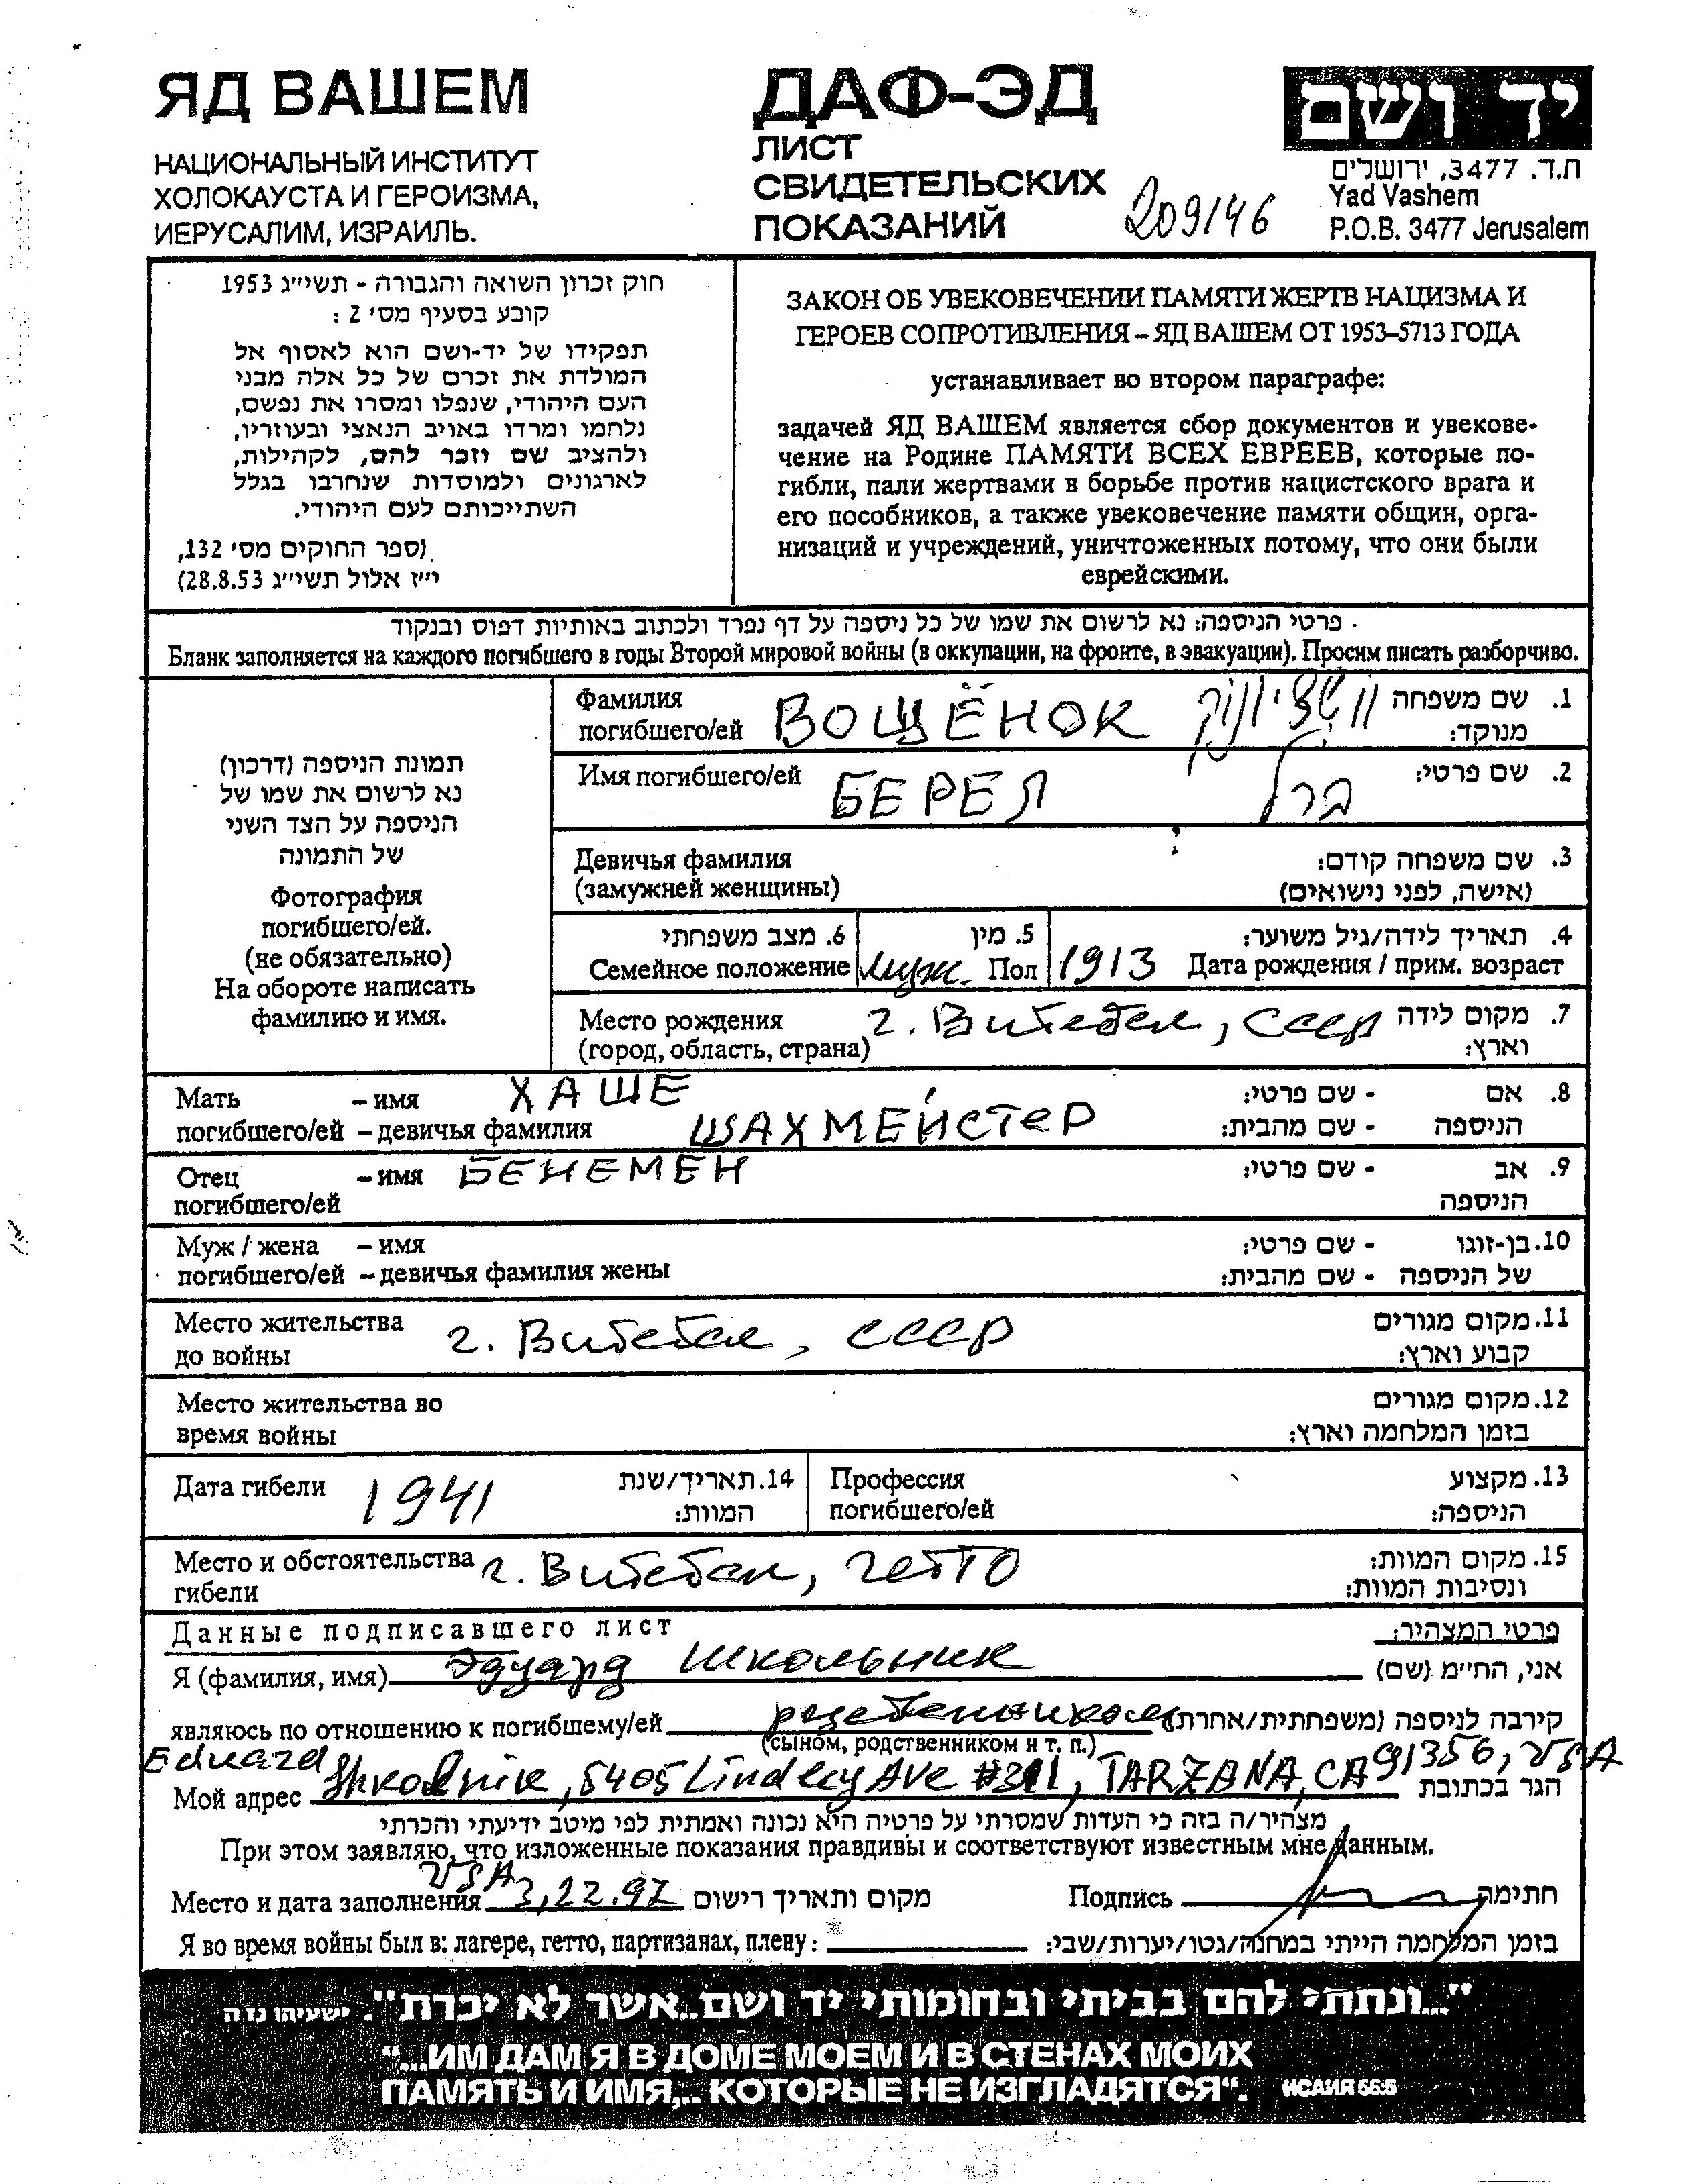 ЯД ВАШЕМ
НАЦИОНАЛЬНЫЙ ИНСТИТУТ
ХОЛОКАУСТА И ГЕРОИЗМА,
ИЕРУСАЛИМ, ИЗРАИЛЬ.
ДАФ-ЭД
ЛИСТ
СВИДЕТЕЛЬСКИХ
ПОКАЗАНИЙ
209146
יד ושם
ת.ד. 3477, ירושלים
Yad Vashem
P.O.B. 3477 Jerusalem
חוק זכרון השואה והגבורה - תשי״ג 1953
קובע בסעיף מס׳ 2 :
תפקידו של יד-ושם הוא לאסוף אל
המולדת את זכרם של כל אלה מבני
העם היהודי, שנפלו ומסרו את נפשם,
נלחמו ומרדו באויב הנאצי ובעוזריו,
ולהציב שם וזכר להם, לקהילות,
לארגונים ולמוסדות שנחרבו בגלל
השתייכותם לעם היהודי.
(ספר החוקים מס׳ 132,
י״ז אלול תשי״ג 28.8.53)
ЗАКОН ОБ УВЕКОВЕЧЕНИИ ПАМЯТИ ЖЕРТВ НАЦИЗМА И
ГЕРОЕВ СОПРОТИВЛЕНИЯ – ЯД ВАШЕМ ОТ 1953–5713 ГОДА
устанавливает во втором параграфе:
задачей ЯД ВАШЕМ является сбор документов и увекове-
чение на Родине ПАМЯТИ ВСЕХ ЕВРЕЕВ, которые по-
гибли, пали жертвами в борьбе против нацистского врага и
его пособников, а также увековечение памяти общин, орга-
низаций и учреждений, уничтоженных потому, что они были
еврейскими.
פרטי הניספה: נא לרשום את שמו של כל ניספה על דף נפרד ולכתוב באותיות דפוס ובנקוד
Бланк заполняется на каждого погибшего в годы Второй мировой войны (в оккупации, на фронте, в эвакуации). Просим писать разборчиво.
תמונת הניספה (דרכון)
נא לרשום את שמו של
הניספה על הצד השני
של התמונה
Фотография
погибшего/ей.
(не обязательно)
На обороте написать
фамилию и имя.
Фамилия
погибшего/ей ВОЩЁНОК
1. שם משפחה
מנוקד:
Имя погибшего/ей БЕРЕЛ ברל 2. שם פרטי:
Девичья фамилия 3. שם משפחה קודם:
(замужней женщины) (אישה, לפני נישואים)
6. מצב משפחתי 5. מין 4. תאריך לידה/גיל משוער:
Семейное положение муж. Пол 1913 Дата рождения / прим. возраст
Место рождения г. Витебск, СССР 7. מקום לידה
(город, область, страна) וארץ:
Мать – имя ХАШЕ - שם פרטי: 8. אם
погибшего/ей – девичья фамилия ШАХМЕЙСТЕР - שם מהבית: הניספה
Отец – имя БЕНЕМЕН - שם פרטי: 9. אב
погибшего/ей הניספה
Муж / жена – имя - שם פרטי: 10. בן-זוגו
погибшего/ей – девичья фамилия жены - שם מהבית: של הניספה
Место жительства г. Витебск, СССР 11. מקום מגורים
до войны קבוע וארץ:
Место жительства во 12. מקום מגורים
время войны בזמן המלחמה וארץ:
Дата гибели 1941 14. תאריך/שנת
המוות:
Профессия 13. מקצוע
погибшего/ей הניספה:
Место и обстоятельства г. Витебск, гетто 15. מקום המוות:
гибели ונסיבות המוות:
Данные подписавшего лист פרטי המצהיר:
Я (фамилия, имя) Эдуард Школьник אני, החי״מ (שם)
являюсь по отношению к погибшему/ей родственником קירבה לניספה (משפחתית/אחרת)
(сыном, родственником и т. п.)
Мой адрес Eduard Shkolnik, 5405 Lindley Ave #311, TARZANA, CA 91356, USA הגר בכתובת
מצהיר/ה בזה כי העדות שמסרתי על פרטיה היא נכונה ואמתית לפי מיטב ידיעתי והכרתי
При этом заявляю, что изложенные показания правдивы и соответствуют известным мне данным.
Место и дата заполнения USA 3,22.97 מקום ותאריך רישום Подпись חתימה
Я во время войны был в: лагере, гетто, партизанах, плену: בזמן המלחמה הייתי במחנה/גטו/יערות/שבי:
"...ונתתי להם בביתי ובחומותי יד ושם...אשר לא יכרת". ישעיהו נו ה
“...ИМ ДАМ Я В ДОМЕ МОЕМ И В СТЕНАХ МОИХ
ПАМЯТЬ И ИМЯ,.. КОТОРЫЕ НЕ ИЗГЛАДЯТСЯ“. ИСАИЯ 56:5